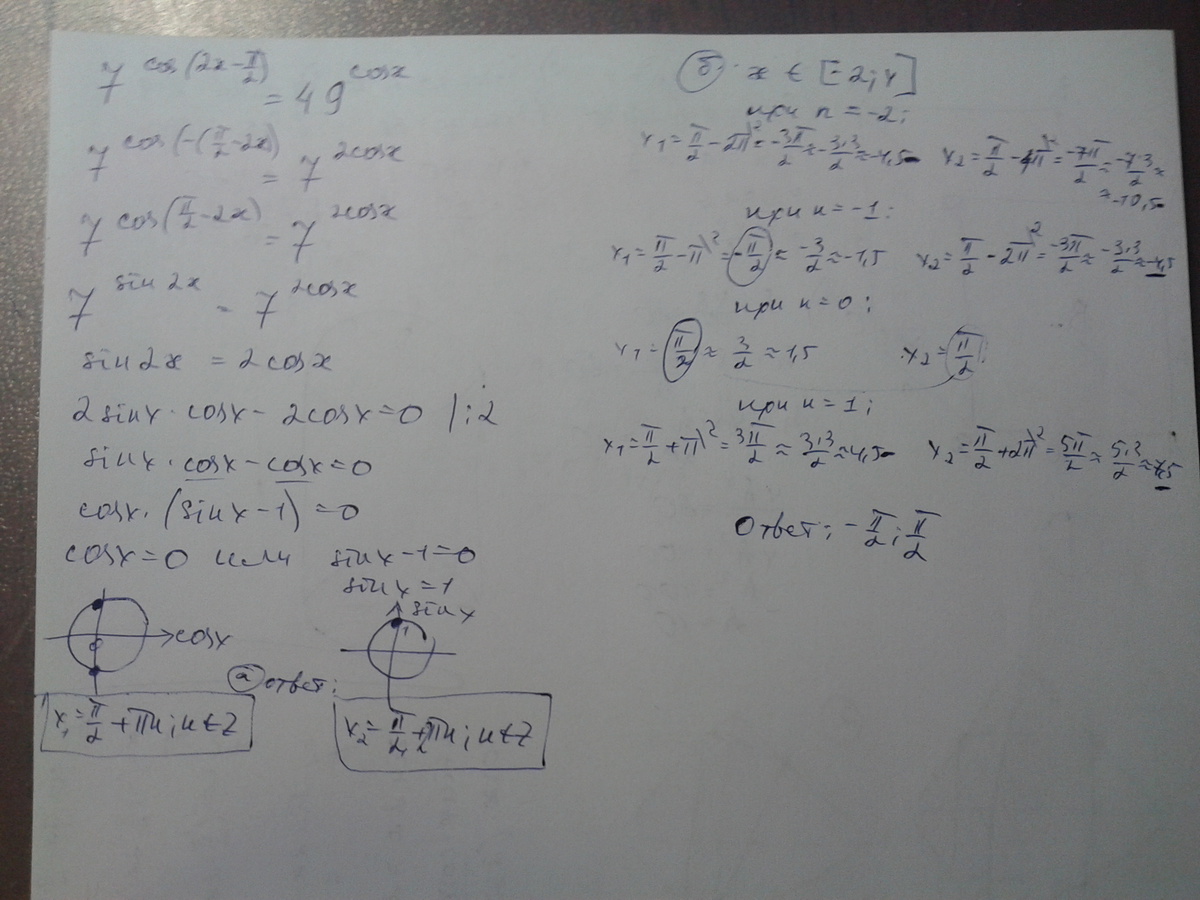 7^(cos(2x-π/2)) = 49^(cosx)
7^(cos(-(π/2-2x)) = 7^(2cosx)
7^(cos(π/2-2x)) = 7^(2cosx)
7^(sin2x) = 7^(2cosx)
sin2x = 2cosx
2sinx·cosx-2cosx=0 |:2
sinx·cosx-cosx=0
cosx·(sinx-1)=0
cosx=0 или sinx-1=0
sinx=1
sinx
1
0
cosx
а ответ:
x₁=π/2+πn; n∈Z
x₂=π/2+2πn; n∈Z
б. x∈[-2;4]
при n=-2;
x₁=π/2-2π\²=-3π/2≈-3·3/2≈-4,5
x₂=π/2-4π\²=-7π/2≈-7·3/2≈
≈-10,5
при n=-1:
x₁=π/2-π\²=-π/2≈-3/2≈-1,5
x₂=π/2-2π\²=-3π/2≈-3·3/2≈-4,5
при n=0;
x₁=π/2≈3/2≈1,5
x₂=π/2;
при n=1;
x₁=π/2+π\²=3π/2≈3·3/2≈4,5
x₂=π/2+2π\²=5π/2≈5·3/2≈7,5
Ответ: -π/2; π/2